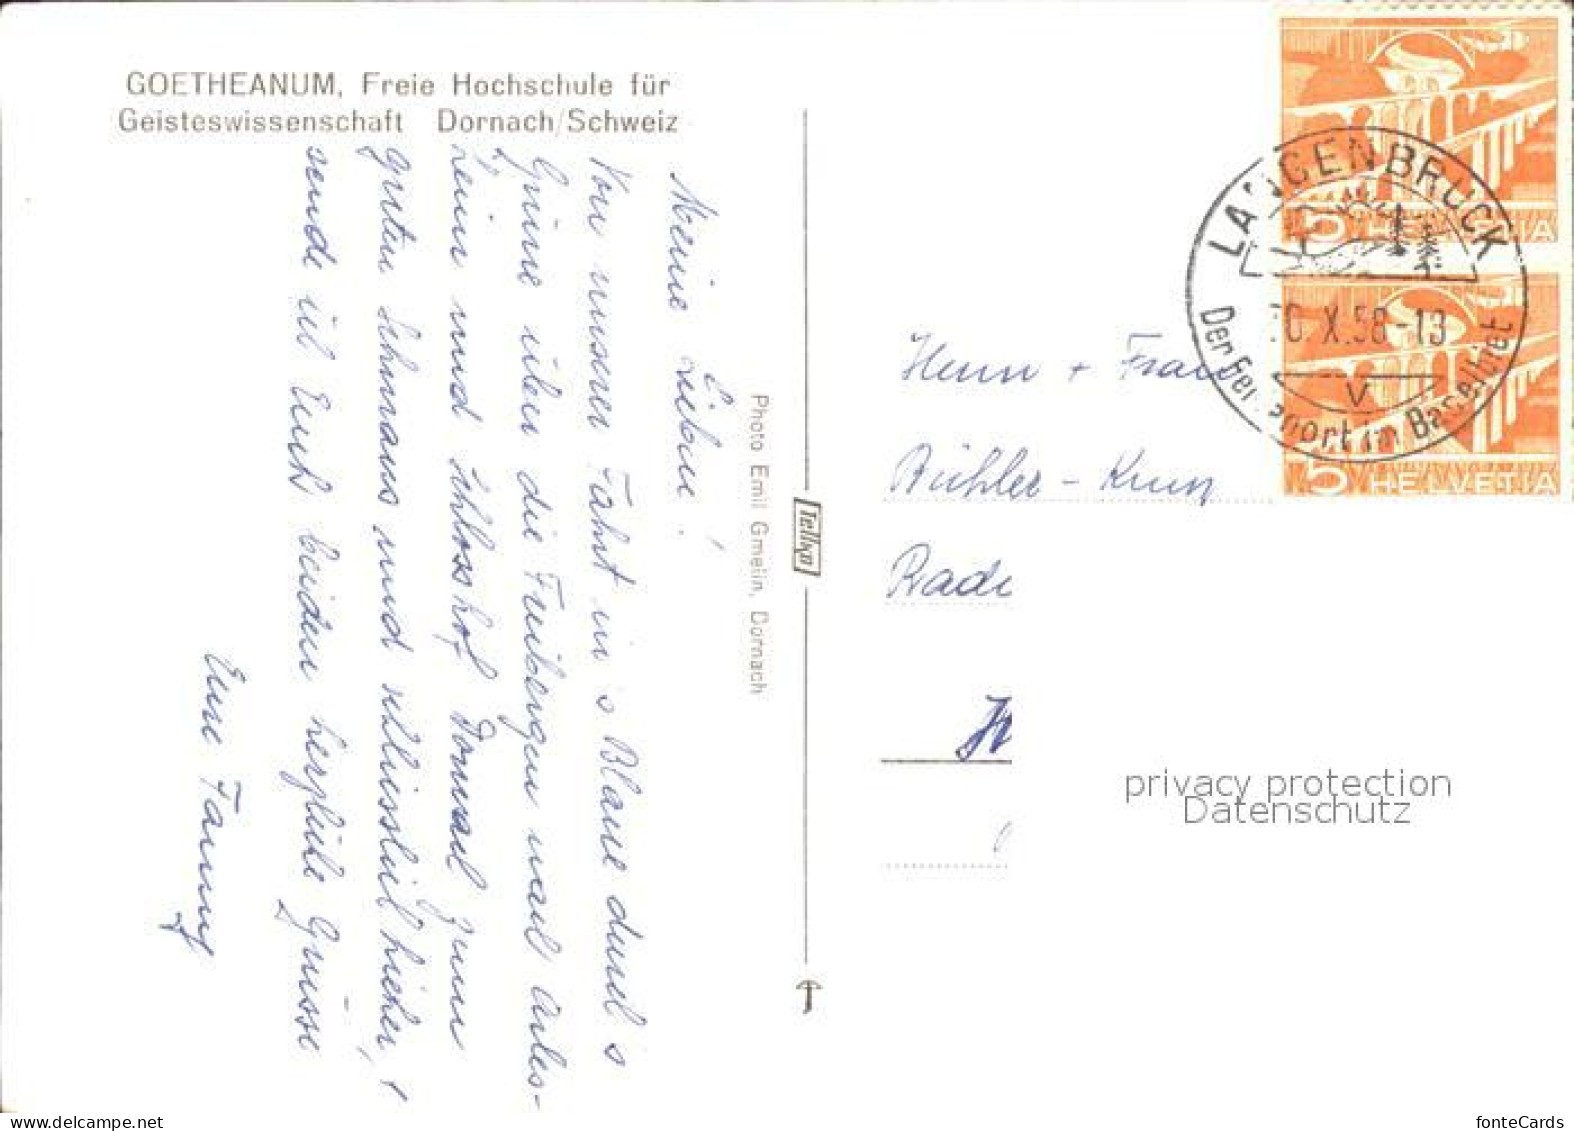 GOETHEANUM, Freie Hochschule für
Geisteswissenschaft Dornach/Schweiz
Meine Lieben!
Von unserer Fahrt in's Blaue durch's
Grüne über die Freibergen nach Arles-
heim und Schlosshof Dornach zum
guten Schmaus und schliesslich hieher,
sende ich Euch beiden herzliche Grüsse
Eure Fanny
Photo Emil Gmelin, Dornach
Herrn + Frau
Bühler - Krum
HELVETIA
5
LANGENBRUCK
0. X. 58 - 13
Der Ferienort im Baselbiet
V
5 HELVETIA
privacy protection
Datenschutz
www.delcampe.net
fonteCards